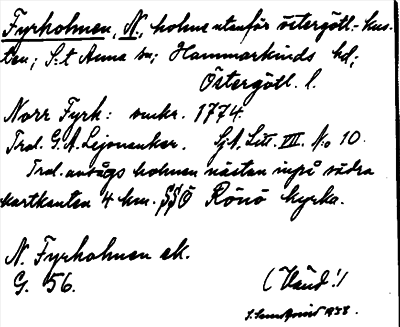 Fyrholmen, N., holme utanför östergötl.-kus-
ten; S:t Anna sn; Hammarkinds hd;
Östergötl. l.
Norr Fyrk: omkr. 1774.
Trol. G. A. Lejonanker. Sj. A. Litt. VII. No 10.
Trol. avsågs holmen nästan inpå södra
kartkanten 4 km. SSÖ Rönö kyrka.
N. Fyrholmen ek.
G. 56.
(Vänd!)
1938.